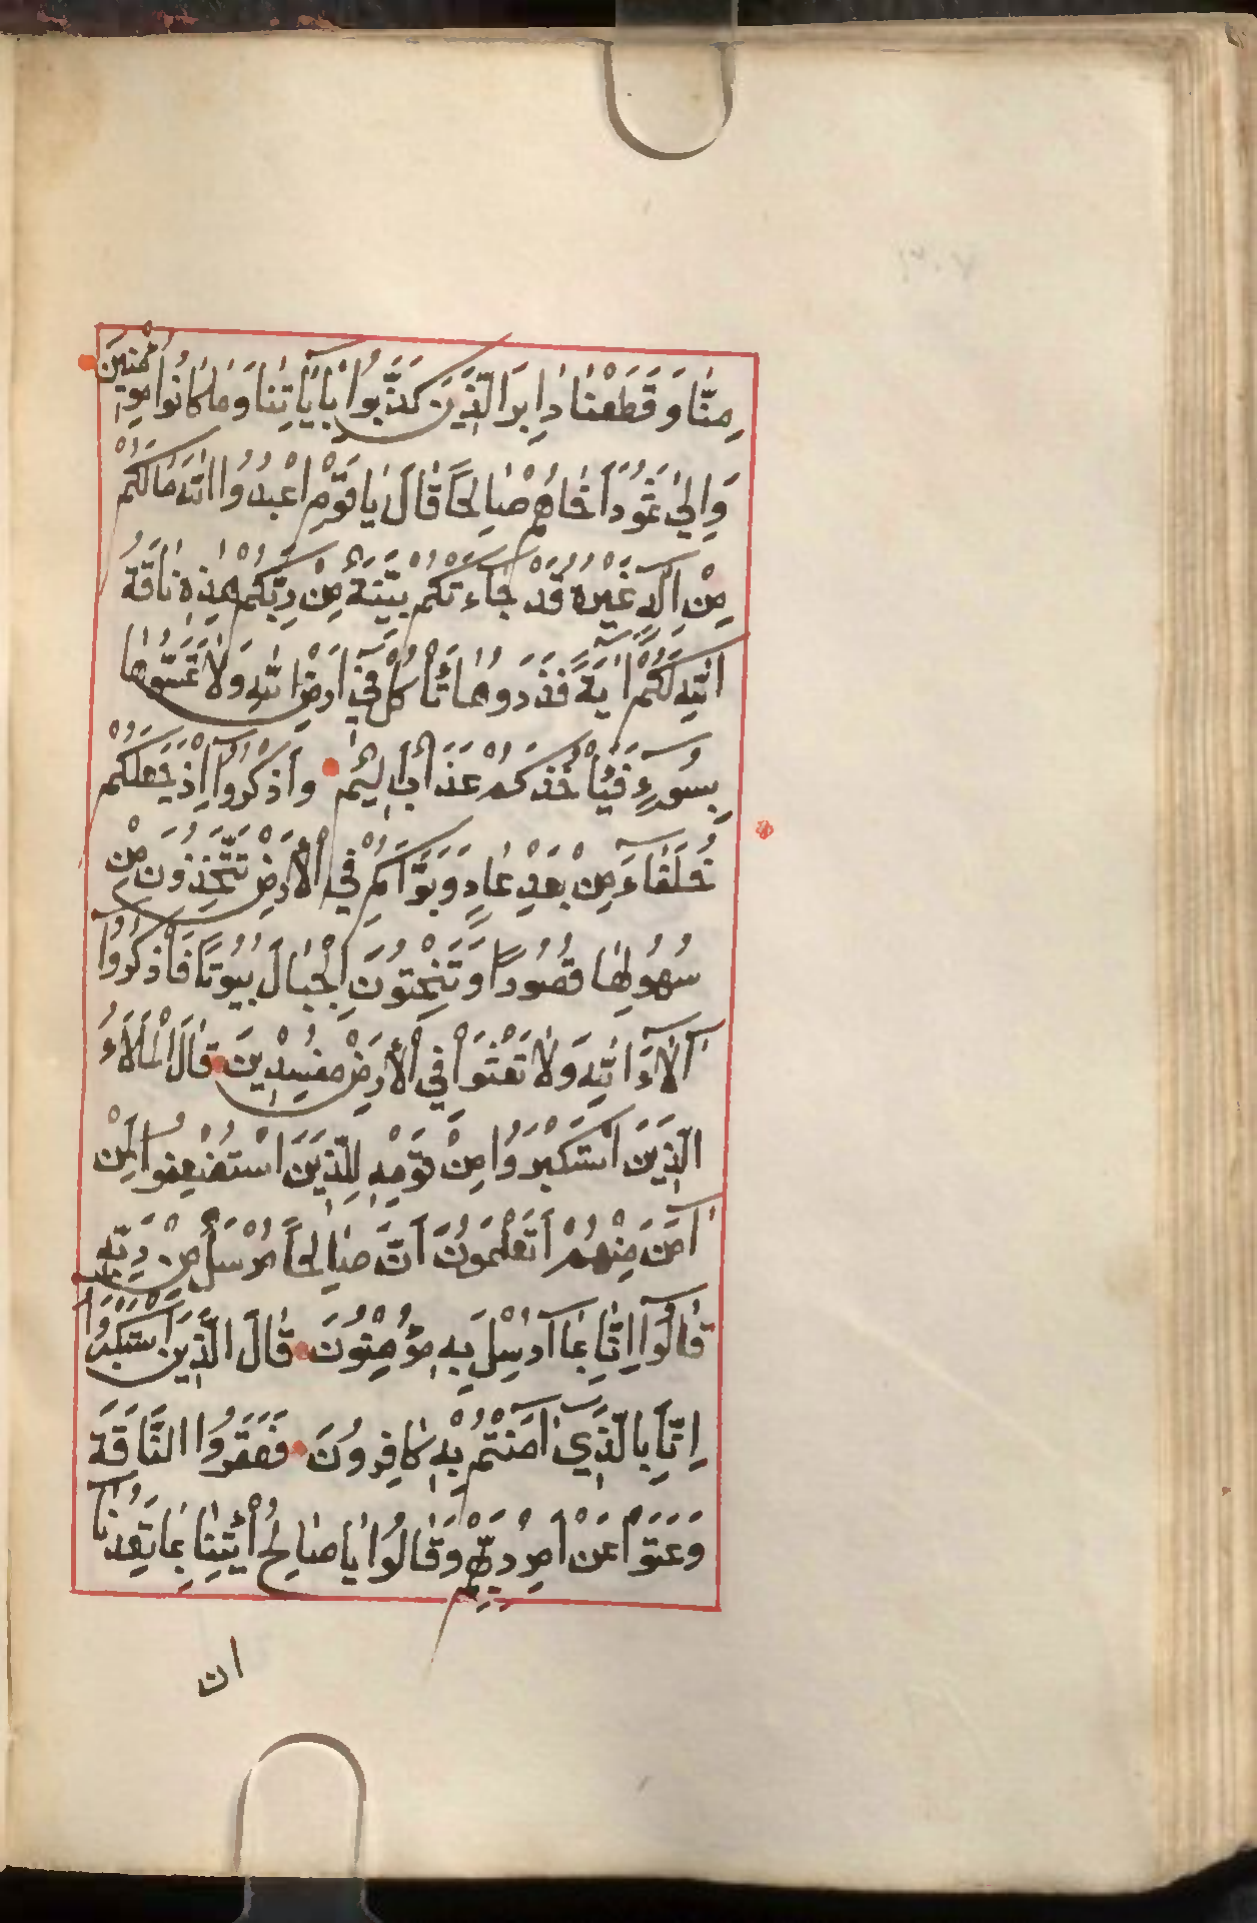 مِنَّا وَقَطَعْنَا دَابِرَ الَّذِينَ كَذَّبُوا بِآيَاتِنَا وَمَا كَانُوا مُؤْمِنِينَ
وَإِلَىٰ ثَمُودَ أَخَاهُمْ صَالِحًا قَالَ يَا قَوْمِ اعْبُدُوا اللَّهَ مَا لَكُمْ
مِنْ إِلَهٍ غَيْرُهُ قَدْ جَاءَتْكُمْ بَيِّنَةٌ مِنْ رَبِّكُمْ هَذِهِ نَاقَةُ
اللَّهِ لَكُمْ آيَةً فَذَرُوهَا تَأْكُلْ فِي أَرْضِ اللَّهِ وَلَا تَمَسُّوهَا
بِسُوءٍ فَيَأْخُذَكُمْ عَذَابٌ أَلِيمٌ وَاذْكُرُوا إِذْ جَعَلَكُمْ
خُلَفَاءَ مِنْ بَعْدِ عَادٍ وَبَوَّأَكُمْ فِي الْأَرْضِ تَتَّخِذُونَ مِنْ
سُهُولِهَا قُصُورًا وَتَنْحِتُونَ الْجِبَالَ بُيُوتًا فَاذْكُرُوا
آلَاءَ اللَّهِ وَلَا تَعْثَوْا فِي الْأَرْضِ مُفْسِدِينَ قَالَ الْمَلَأُ
الَّذِينَ اسْتَكْبَرُوا مِنْ قَوْمِهِ لِلَّذِينَ اسْتُضْعِفُوا لِمَنْ
آمَنَ مِنْهُمْ أَتَعْلَمُونَ أَنَّ صَالِحًا مُرْسَلٌ مِنْ رَبِّهِ
قَالُوا إِنَّا بِمَا أُرْسِلَ بِهِ مُؤْمِنُونَ قَالَ الَّذِينَ اسْتَكْبَرُوا
إِنَّا بِالَّذِي آمَنْتُمْ بِهِ كَافِرُونَ فَعَقَرُوا النَّاقَةَ
وَعَتَوْا عَنْ أَمْرِ رَبِّهِمْ وَقَالُوا يَا صَالِحُ ائْتِنَا بِمَا تَعِدُنَا
ان